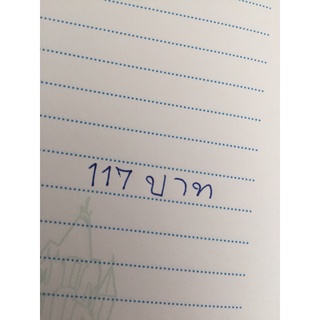 117 บาท